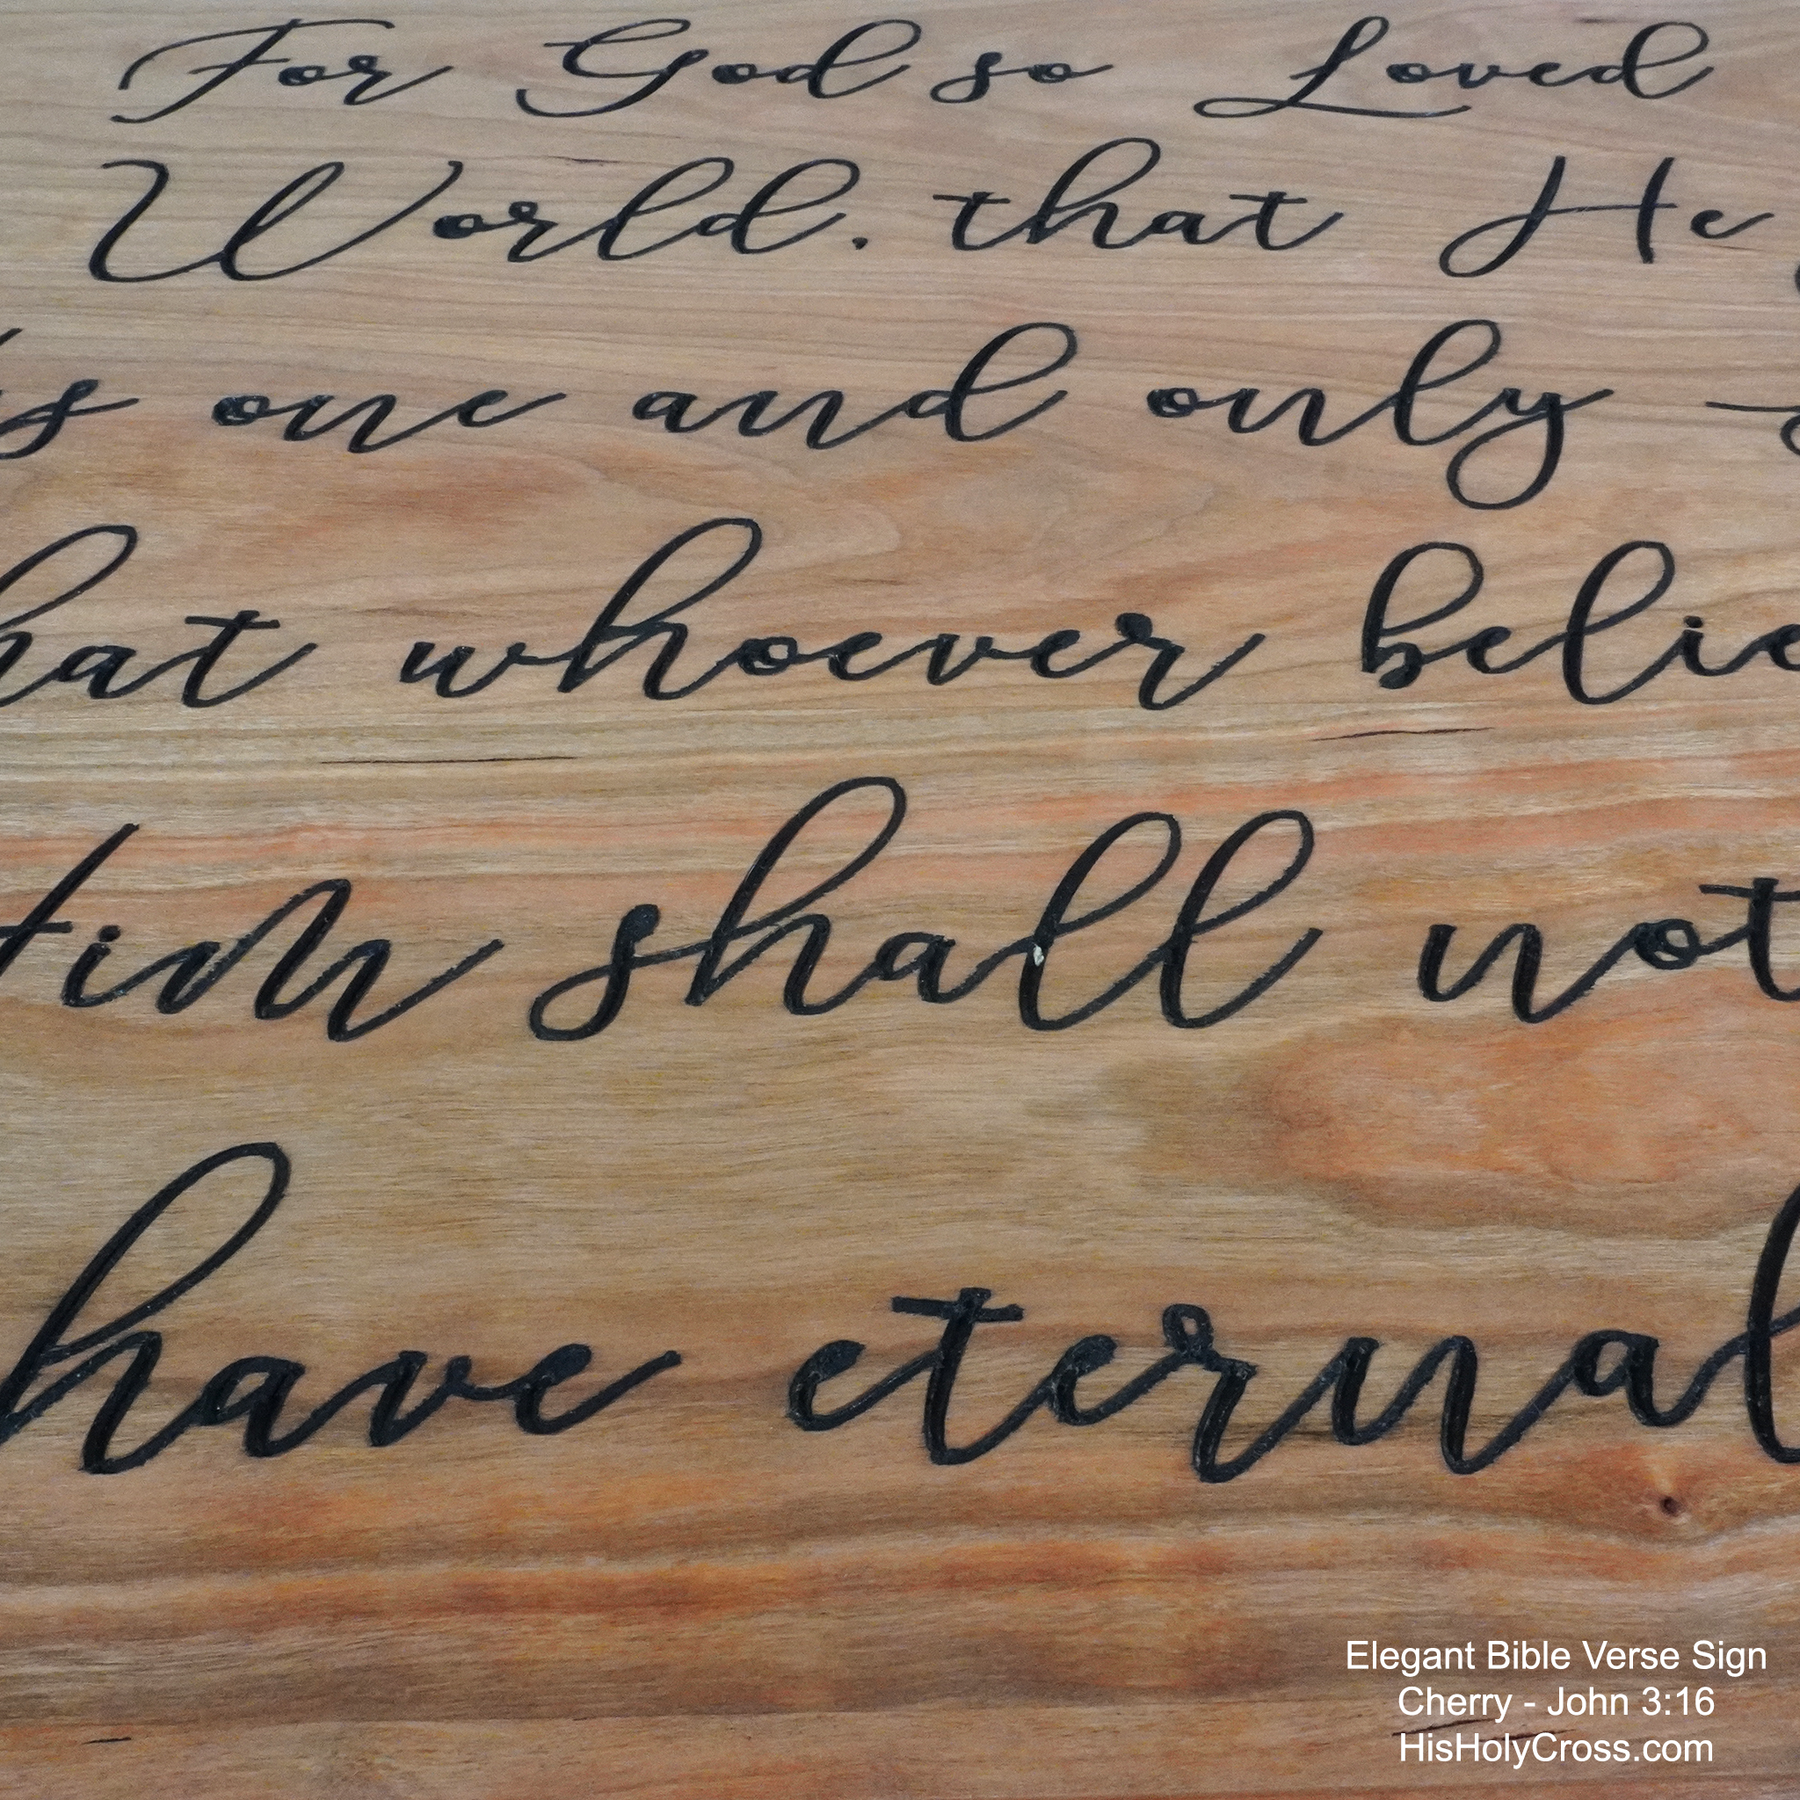 For God so Loved
World. that He
one and only
hat whoever belie
Him shall not
have eternal
Elegant Bible Verse Sign
Cherry - John 3:16
HisHolyCross.com